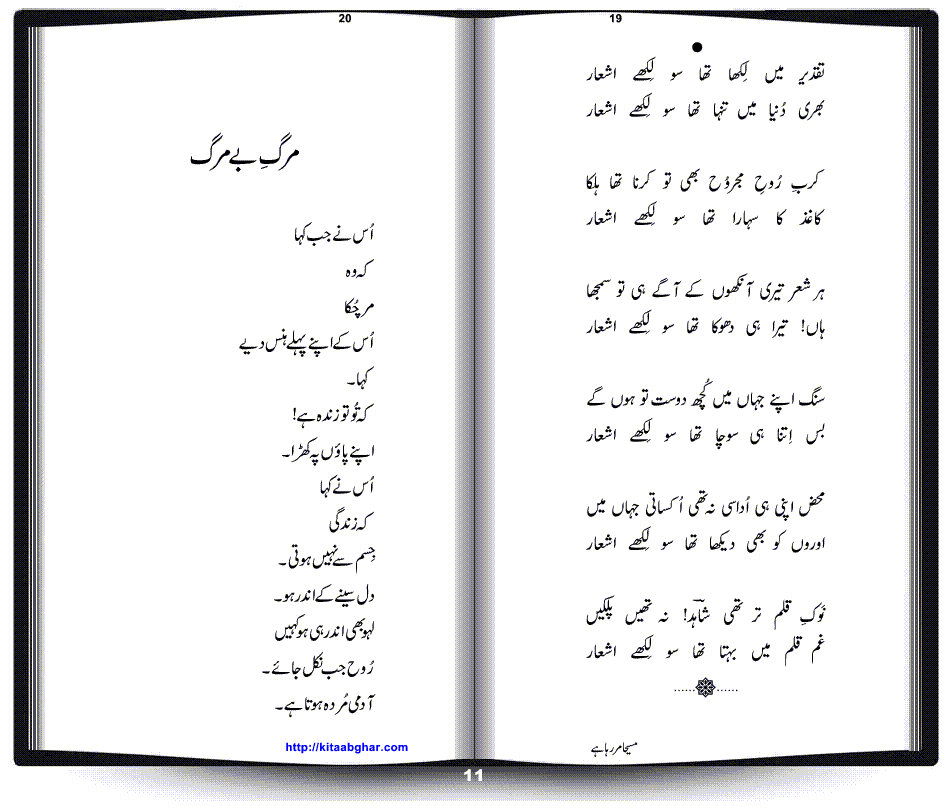 19
تقدیر میں لِکھا تھا سو لِکھے اشعار
بھری دُنیا میں تنہا تھا سو لِکھے اشعار
کربِ رُوحِ مجروُح بھی تو کرنا تھا ہلکا
کاغذ کا سہارا تھا سو لِکھے اشعار
ہر شعر تیری آنکھوں کے آگے ہی تو سمجھا
ہاں! تیرا ہی دھوکا تھا سو لِکھے اشعار
سنگ اپنے جہاں میں کُچھ دوست تو ہوں گے
بس اِتنا ہی سوچا تھا سو لِکھے اشعار
محض اپنی ہی اُداسی نہ تھی اُکساتی جہاں میں
اوروں کو بھی دیکھا تھا سو لِکھے اشعار
نَوکِ قلم تر تھی شاہدؔ! نہ تھیں پلکیں
غم قلم میں بہتا تھا سو لِکھے اشعار
مسیحا مر رہا ہے
20
مرگِ بے مرگ
اُس نے جب کہا
کہ وہ
مر چُکا
اُس کے اپنے پہلے ہنس دیے
کہا۔
کہ تُو تو زندہ ہے!
اپنے پاؤں پہ کھڑا۔
اُس نے کہا
کہ زندگی
جِسم سے نہیں ہوتی۔
دل سینے کے اندر ہو۔
لہو بھی اندر ہی ہو کہیں
رُوح جب نکل جائے۔
آدمی مُردہ ہوتا ہے۔
http://kitaabghar.com
11